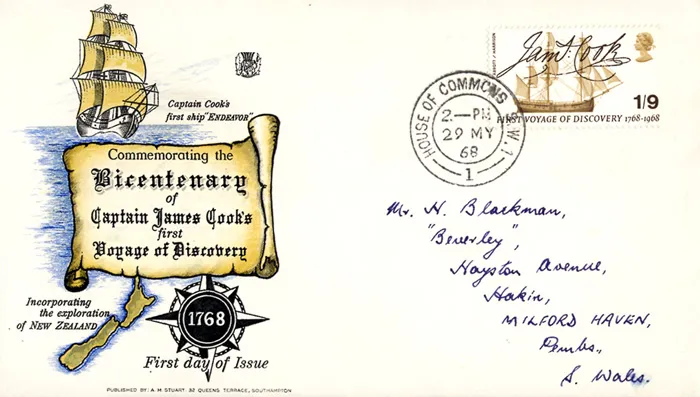 Captain Cook's
first ship "ENDEAVOR"
Commemorating the
Bicentenary
of
Captain James Cook's
first
Voyage of Discovery
Incorporating
the exploration
of NEW ZEALAND
1768
First day of Issue
PUBLISHED BY: A. M. STUART. 32 QUEENS TERRACE, SOUTHAMPTON
HOUSE OF COMMONS S.W.1
2–PM
29 MY
68
1
Jam.s Cook
1/9
FIRST VOYAGE OF DISCOVERY 1768-1968
Mr. H. Blackman,
"Beverley",
Hayston Avenue,
Hakin,
MILFORD HAVEN,
Pembs.,
S. Wales.